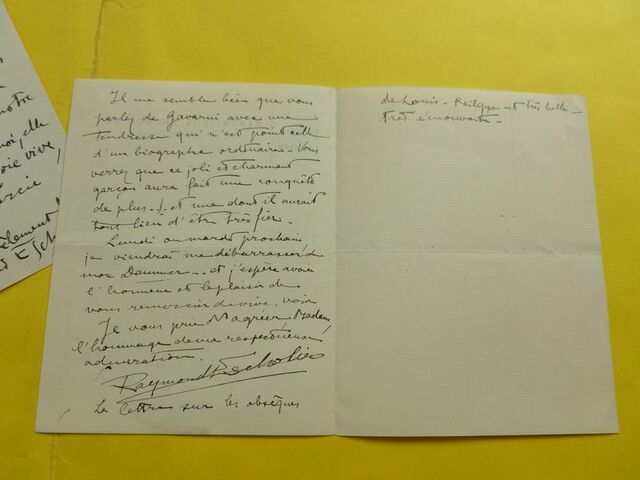 notre
moi, elle
joie vive,
Il me semble bien que vous
parlez de Gavarni avec une
tendresse qui n'est point celle
d'un biographe ordinaire. Vous
verrez que ce joli et charmant
garçon aura fait une conquête
de plus.. et une dont il aurait
tout lieu d'être très fier.
Lundi ou mardi prochain
je viendrai me débarrasser de
mon Daumier.. et j'espère avoir
l'honneur et le plaisir de
vous remercier de vive voix
Je vous prie d'agréer, Madame
l'hommage de ma respectueuse
admiration.
Raymond Escholier
La lettre sur les obsèques
de Louis-Philippe est très belle -
très émouvante.